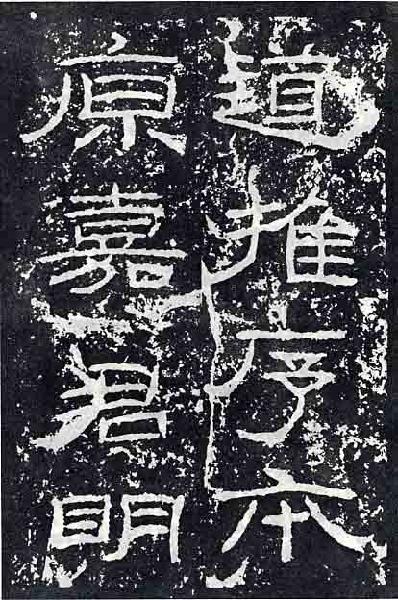 道推序本
原嘉君明